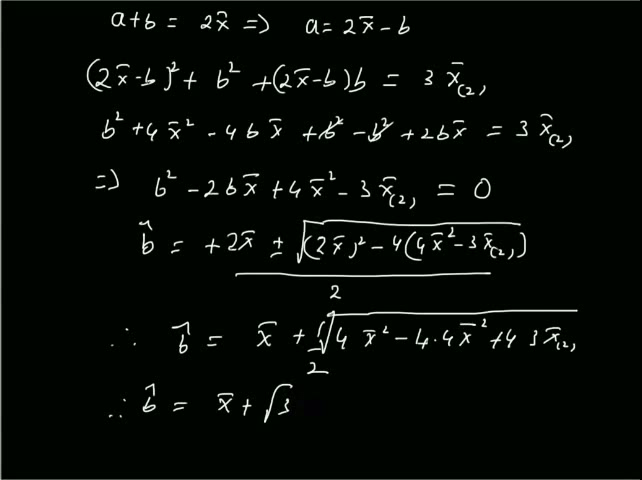 a+b = 2x̄ => a = 2x̄-b
(2x̄-b)² + b² + (2x̄-b)b = 3 x̄₍₂₎
b² + 4x̄² - 4bx̄ + b² - b² + 2bx̄ = 3 x̄₍₂₎
=> b² - 2bx̄ + 4x̄² - 3x̄₍₂₎ = 0
b̂ = +2x̄ ± √((2x̄)² - 4(4x̄² - 3x̄₍₂₎))
2
∴ b̂ = x̄ + √(4 x̄² - 4·4x̄² + 4 3x̄₍₂₎)
2
∴ b̂ = x̄ + √3